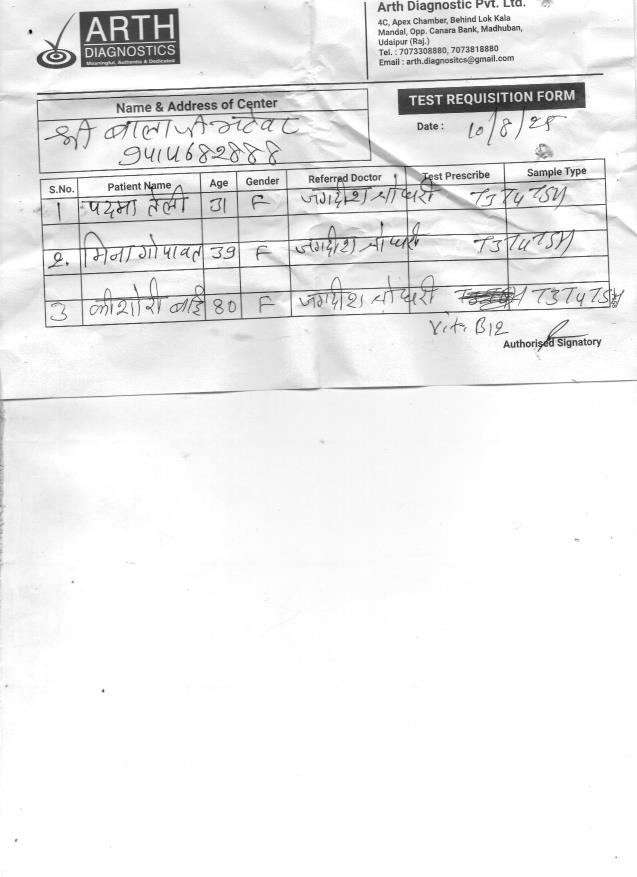 ARTH
DIAGNOSTICS
Meaningful, Authentic & Dedicated
Arth Diagnostic Pvt. Ltd.
4C, Apex Chamber, Behind Lok Kala
Mandal, Opp. Canara Bank, Madhuban,
Udaipur (Raj.)
Tel. : 7073308880, 7073818880
Email : arth.diagnositcs@gmail.com
Name & Address of Center
श्री बालाजी
9414682888
TEST REQUISITION FORM
Date : 10/8/25
S.No. Patient Name Age Gender Referred Doctor Test Prescribe Sample Type
1 पदमा तेली 31 F जगदीश चौधरी T3T4TSH
2. मिना गोपावत 39 F जगदीश चौधरी T3T4TSH
3 कीशोरी बाई 80 F जगदीश चौधरी T3T4TSH
Vit. B12
Authorised Signatory